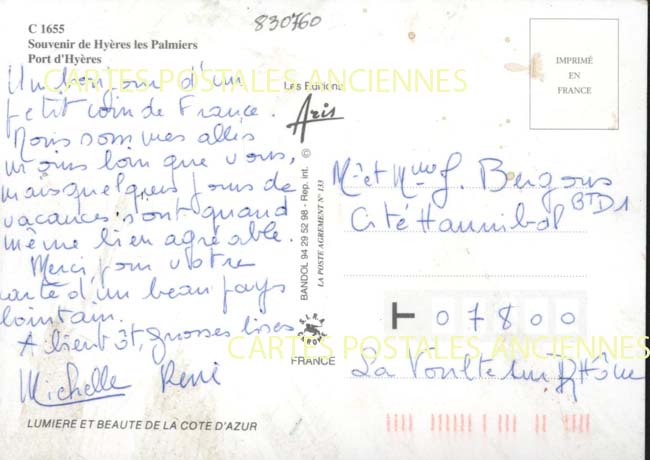 830760
C 1655
Souvenir de Hyères les Palmiers
Port d'Hyères
Un bonjour d'un
petit coin de France.
Nous sommes allés
moins loin que vous,
mais quelques jours de
vacances sont quand
même bien agréable.
Merci pour votre
carte d'un beau pays
lointain.
A bientôt, grosses bises
Michelle René
LUMIERE ET BEAUTE DE LA COTE D'AZUR
Les Editions
Aris
BANDOL 94 29 52 98 - Rep. int. ©
LA POSTE AGREMENT N° 133
FRANCE
IMPRIMÉ
EN
FRANCE
Mr et Mme J. Bergons
Cité Hannibal BTD1
T 07800
La Voulte sur Rhône
CARTES POSTALES ANCIENNES
CARTES POSTALES ANCIENNES